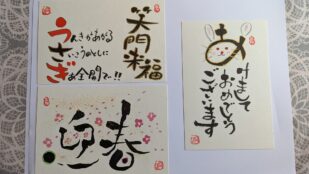 笑門来福
うんきがあがる
さいこうのとしに
ぎあ全開で!!
迎春
あけまして
おめでとう
ございます